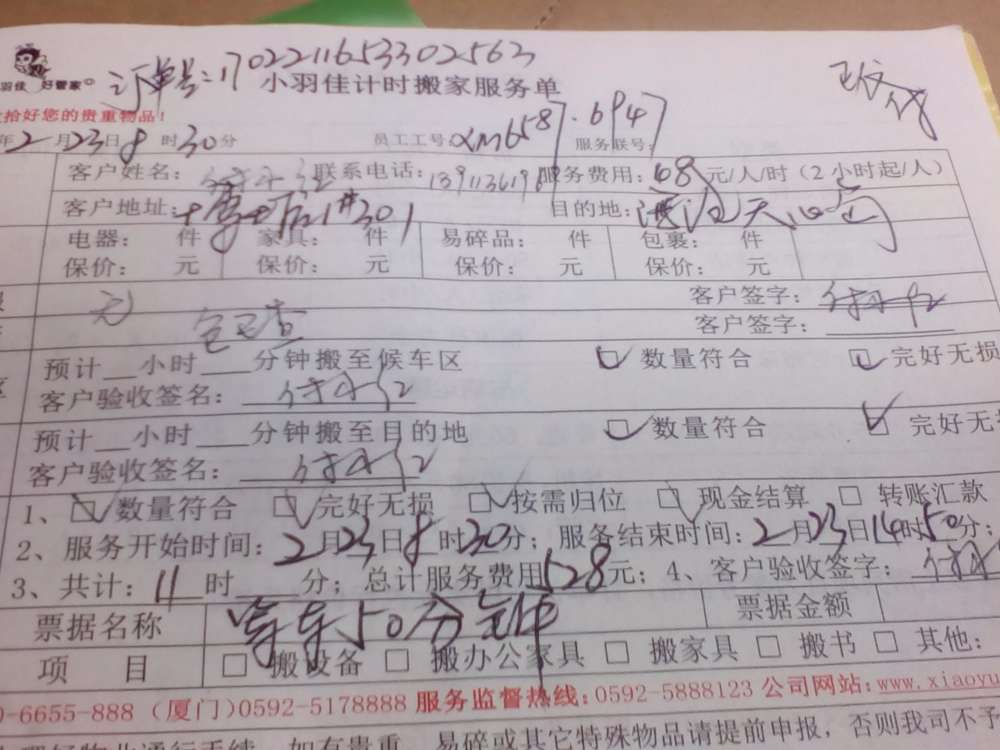 订单号:1702211653302563
羽佳 好管家
小羽佳计时搬家服务单
拾好您的贵重物品!
年2月23日8时30分 员工工号xm6587.6947 服务联号:
客户姓名: 联系电话: 服务费用:68元/人/时(2小时起/人)
客户地址: 1#301 目的地:
电器: 件 家具: 件 易碎品: 件 包裹: 件
保价: 元 保价: 元 保价: 元 保价: 元
无 客户签字:
包已查 客户签字:
预计__小时___分钟搬至候车区 数量符合 完好无损
客户验收签名:
预计__小时___分钟搬至目的地 数量符合 完好无
客户验收签名:
1、数量符合 完好无损 按需归位 现金结算 转账汇款
2、服务开始时间:2月23日8时30分;服务结束时间:2月23日14时50分;
3、共计:11时____分;总计服务费用 528元;4、客户验收签字:
票据名称 等车50分钟 票据金额
项 目 搬设备 搬办公家具 搬家具 搬书 其他:
0-6655-888 (厦门)0592-5178888 服务监督热线:0592-5888123 公司网站:www.xiaoyu
理好物业通行手续,如有贵重、易碎或其它特殊物品请提前申报,否则我司不予